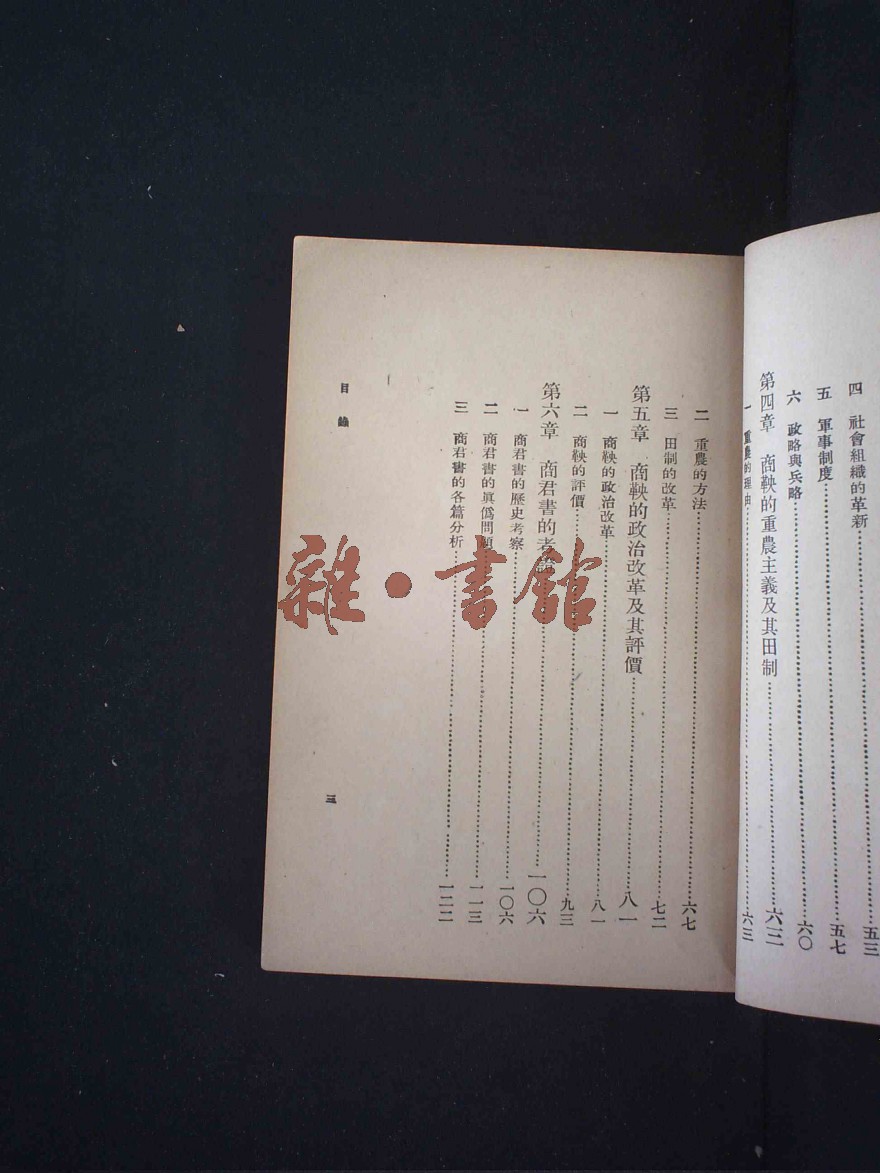 四 社會組織的革新……五三
五 軍事制度……五七
六 政略與兵略……六〇
第四章 商鞅的重農主義及其田制……六三
一 重農的理由……六三
二 重農的方法……六七
三 田制的改革……七二
第五章 商鞅的政治改革及其評價……八一
一 商鞅的政治改革……八一
二 商鞅的評價……九三
第六章 商君書的考……一〇六
一 商君書的歷史考察……一〇六
二 商君書的眞僞問題……一一三
三 商君書的各篇分析……一二二
目錄
三
雜·書館